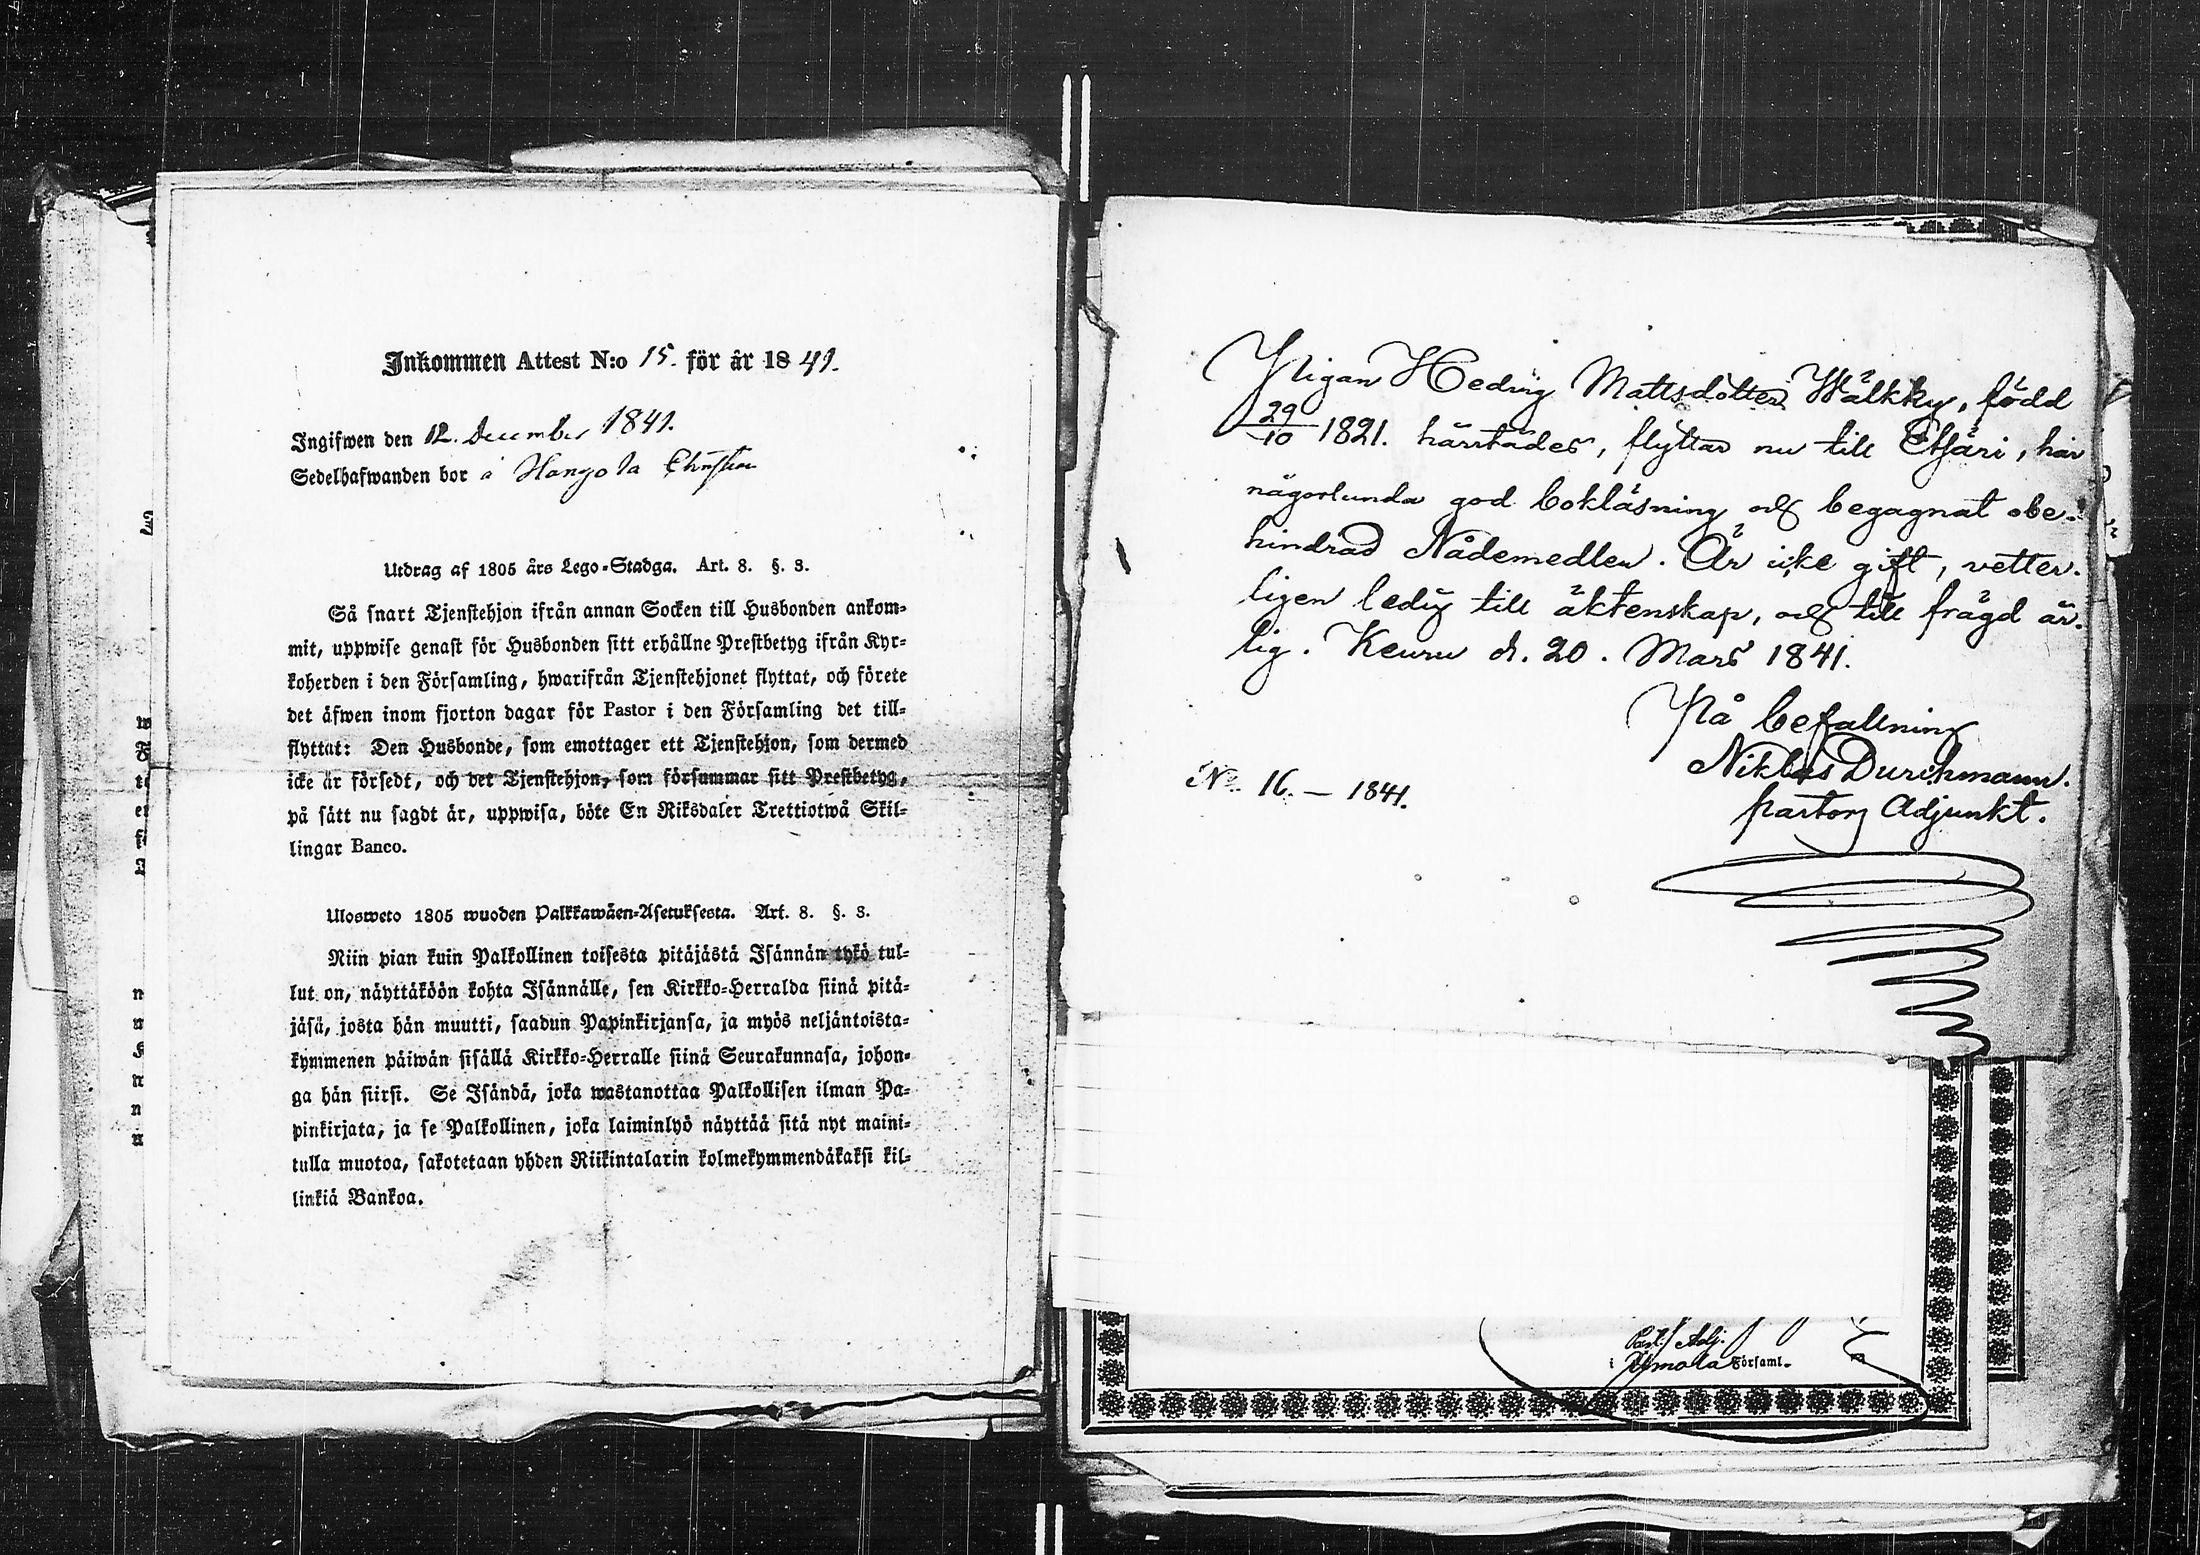 Inkommen Attest N:o 15. för år 1841.
Ingifwen den 12. December 1841.
Sedelhafwanden bor å Hangola
Utdrag af 1805 års Lego-Stadga. Art. 8. §. 3.
Så snart Tjenstehjon ifrån annan Socken till Husbonden ankom-
mit, uppwise genast för Husbonden sitt erhållne Prestbetyg ifrån Kyr-
koherden i den Församling, hwarifrån Tjenstehjonet flyttat, och förete
det äfwen inom fjorton dagar för Pastor i den Församling det till-
flyttat: Den Husbonde, som emottager ett Tjenstehjon, som dermed
icke är försedt, och det Tjenstehjon, som försummar sitt Prestbetyg,
på sätt nu sagdt är, uppwisa, böte En Riksdaler Trettiotwå Skil-
lingar Banco.
Ulosweto 1805 wuoden Palkkawäen-Asetuksesta. Art. 8. §. 3.
Niin pian kuin Palkollinen toisesta pitäjästä Isännän tykö tul-
lut on, näyttäköön kohta Isännälle, sen Kirkko-Herralda siinä pitä-
jäsä, josta hän muutti, saadun Papinkirjansa, ja myös neljäntoista-
kymmenen päiwän sisällä Kirkko-Herralle siinä Seurakunnasa, johon-
ga hän siirsi. Se Isändä, joka wastanottaa Palkollisen ilman Pa-
pinkirjata, ja se Palkollinen, joka laiminlyö näyttää sitä nyt maini-
tulla muotoa, sakotetaan yhden Riikintalarin kolmekymmendäkaksi kil-
linkiä Bankoa.
Pigan Hedvig Mattsdotter Wälkky, född
29/10 1821. härstädes, flyttar nu till Etsäri, har
någorlunda god bokläsning och begagnat obe-
hindrad Nådemedlen. Är icke gift, vetter-
ligen ledig till äktenskap, och till frägd är-
lig. Keuru d. 20. Mars 1841.
På befallning
Niklas Durchmann.
pastors Adjunkt.
No. 16. — 1841.
Past. Adj.
i Församl.